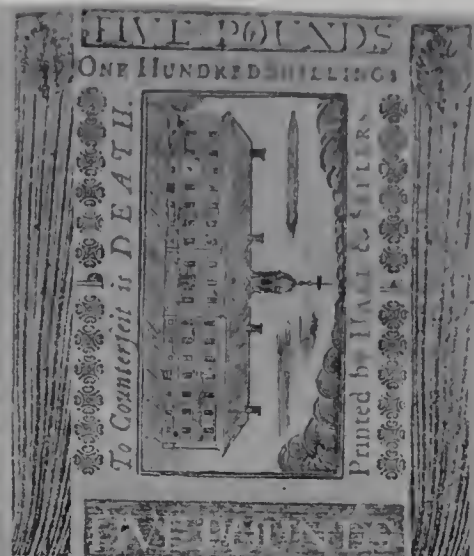 FIVE POUNDS
ONE HUNDRED SHILLINGS
To Counterfeit is DEATH.
Printed by HALL & SELLERS